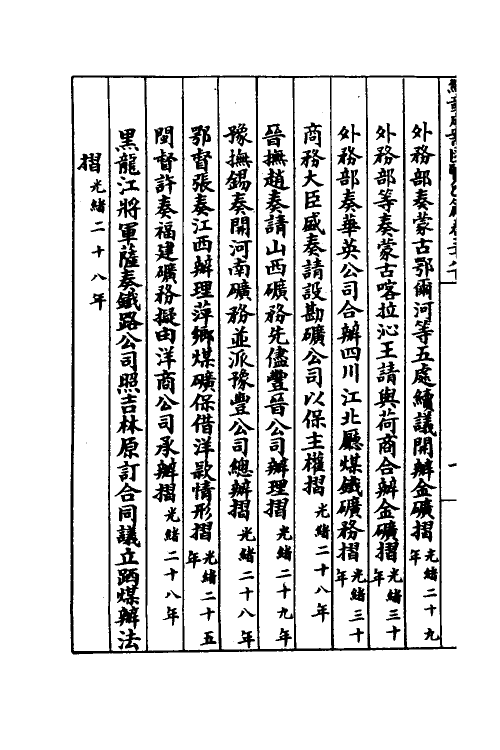 外務部奏蒙古鄂爾河等五處續議開辦金礦摺光緒二十九年
外務部等奏蒙古喀拉沁王請與荷商合辦金礦摺光緒三十年
外務部奏華英公司合辦四川江北廳煤鐵礦務摺光緒三十年
商務大臣盛奏請設勘礦公司以保主權摺光緒二十八年
晉撫趙奏請山西礦務先儘豐晉公司辦理摺光緒二十九年
豫撫錫奏開河南礦務並派豫豐公司總辦摺光緒二十八年
鄂督張奏江西辦理萍鄉煤礦保借洋款情形摺光緒二十五年
閩督許奏福建礦務擬由洋商公司承辦摺光緒二十八年
黑龍江將軍薩奏鐵路公司照吉林原訂合同議立跴煤辦法
摺光緒二十八年